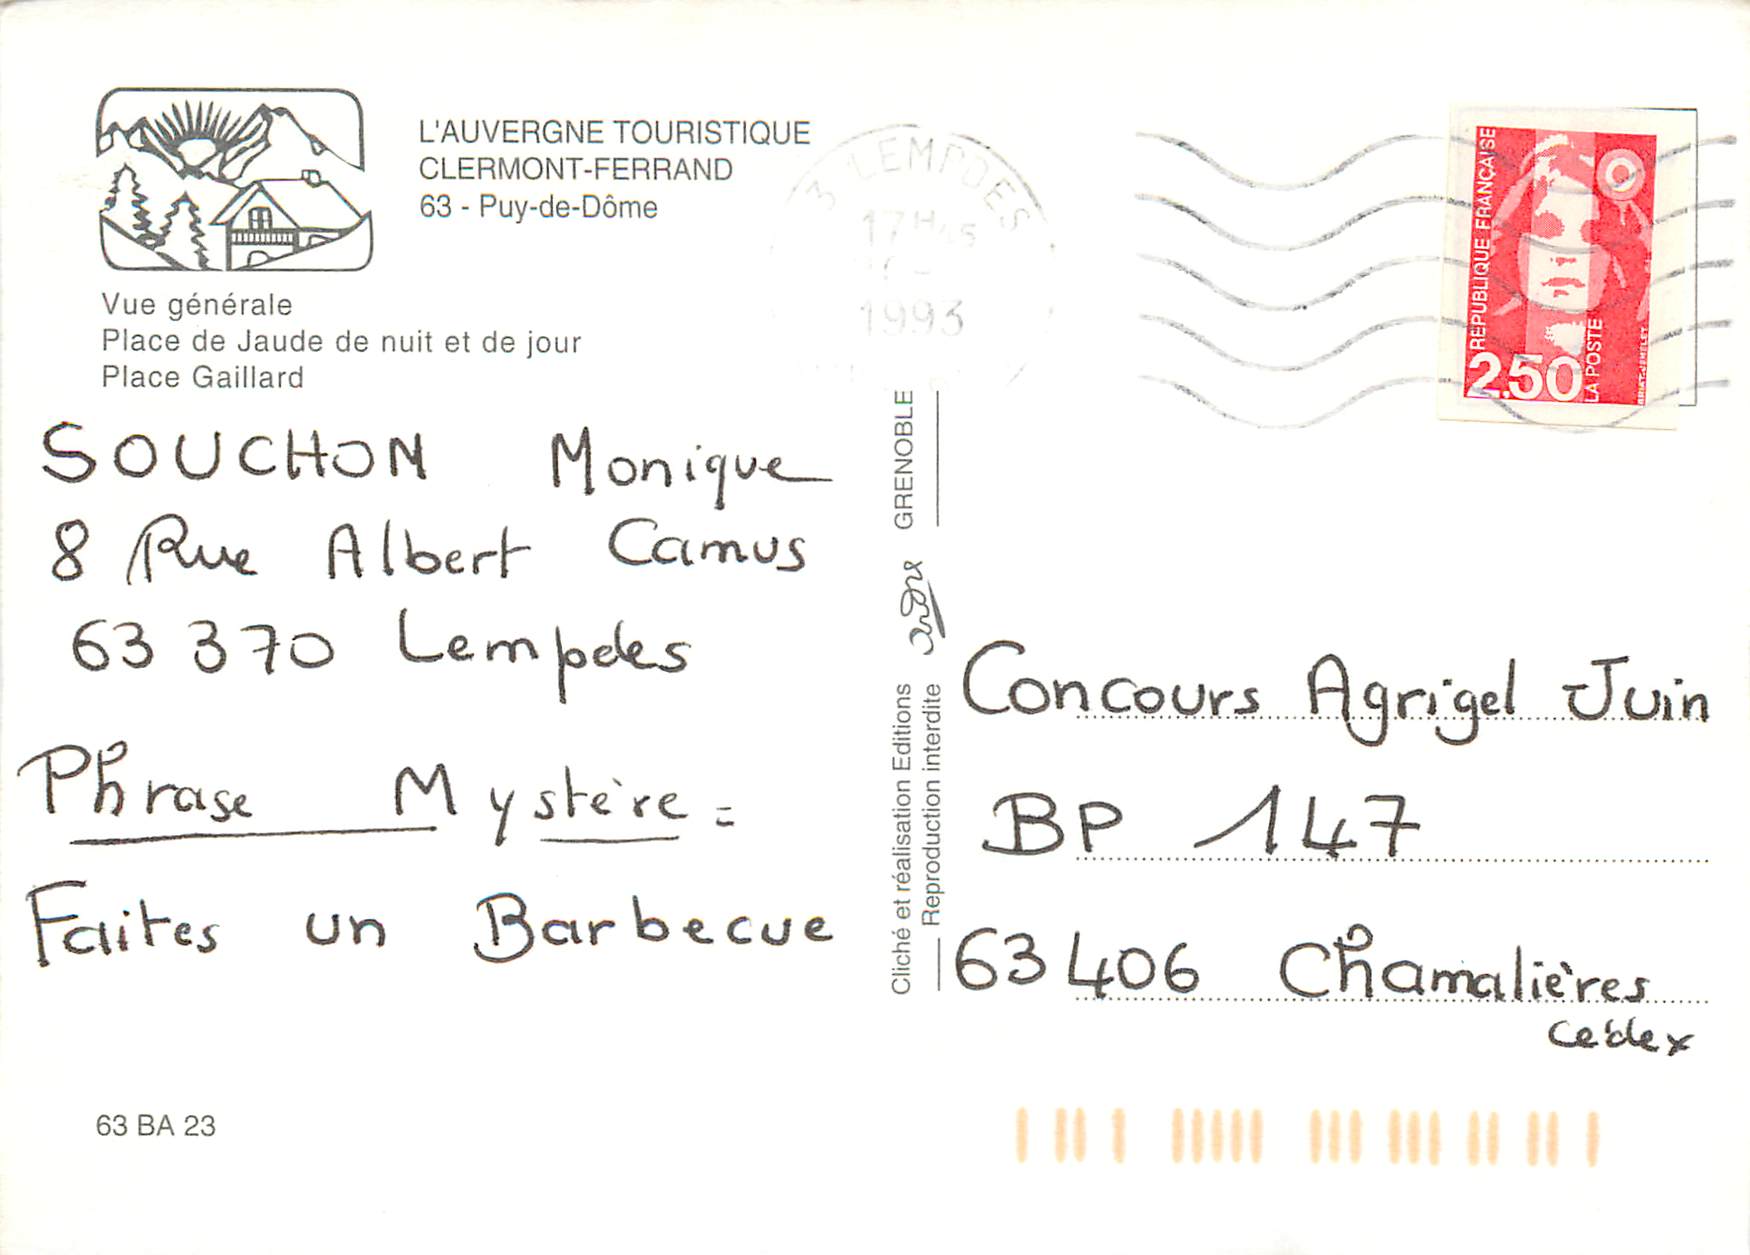 L'AUVERGNE TOURISTIQUE
CLERMONT-FERRAND
63 - Puy-de-Dôme
Vue générale
Place de Jaude de nuit et de jour
Place Gaillard
SOUCHON Monique
8 Rue Albert Camus
63 370 Lempdes
Phrase Mystère =
Faites un Barbecue
63 BA 23
Cliché et réalisation Editions andré GRENOBLE
Reproduction interdite
3 LEMPDES
17H45
1993
REPUBLIQUE FRANÇAISE
2,50
LA POSTE
Concours Agrigel Juin
BP 147
63406 Chamalières
cedex